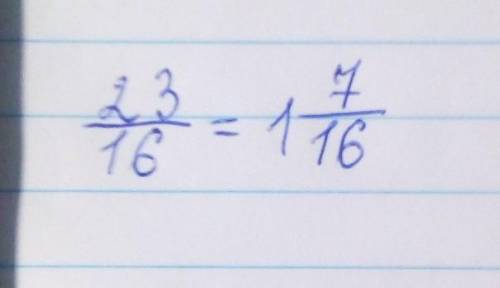 23/16 = 1 7/16